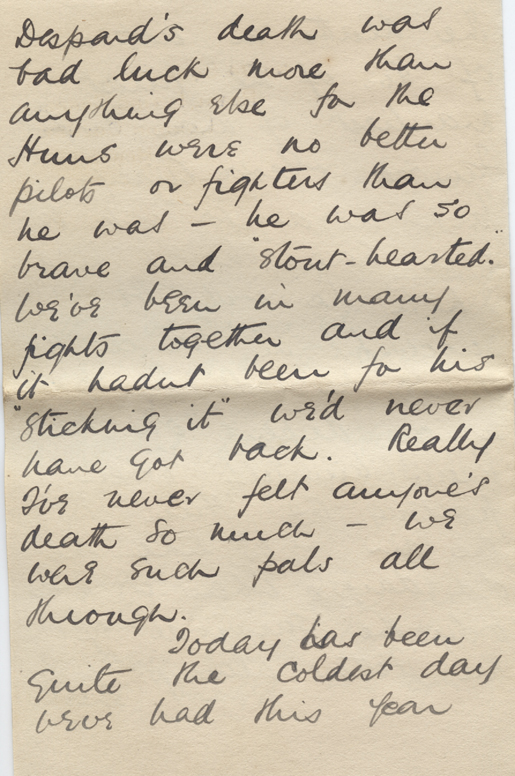 Despard's death was
bad luck more than
anything else for the
Huns were no better
pilots or fighters than
he was – he was so
brave and "stout-hearted."
We've been in many
fights together and if
it hadnt been for his
"sticking it" we'd never
have got back. Really
I've never felt anyone's
death so much – we
were such pals all
through.
Today has been
quite the coldest day
weve had this year